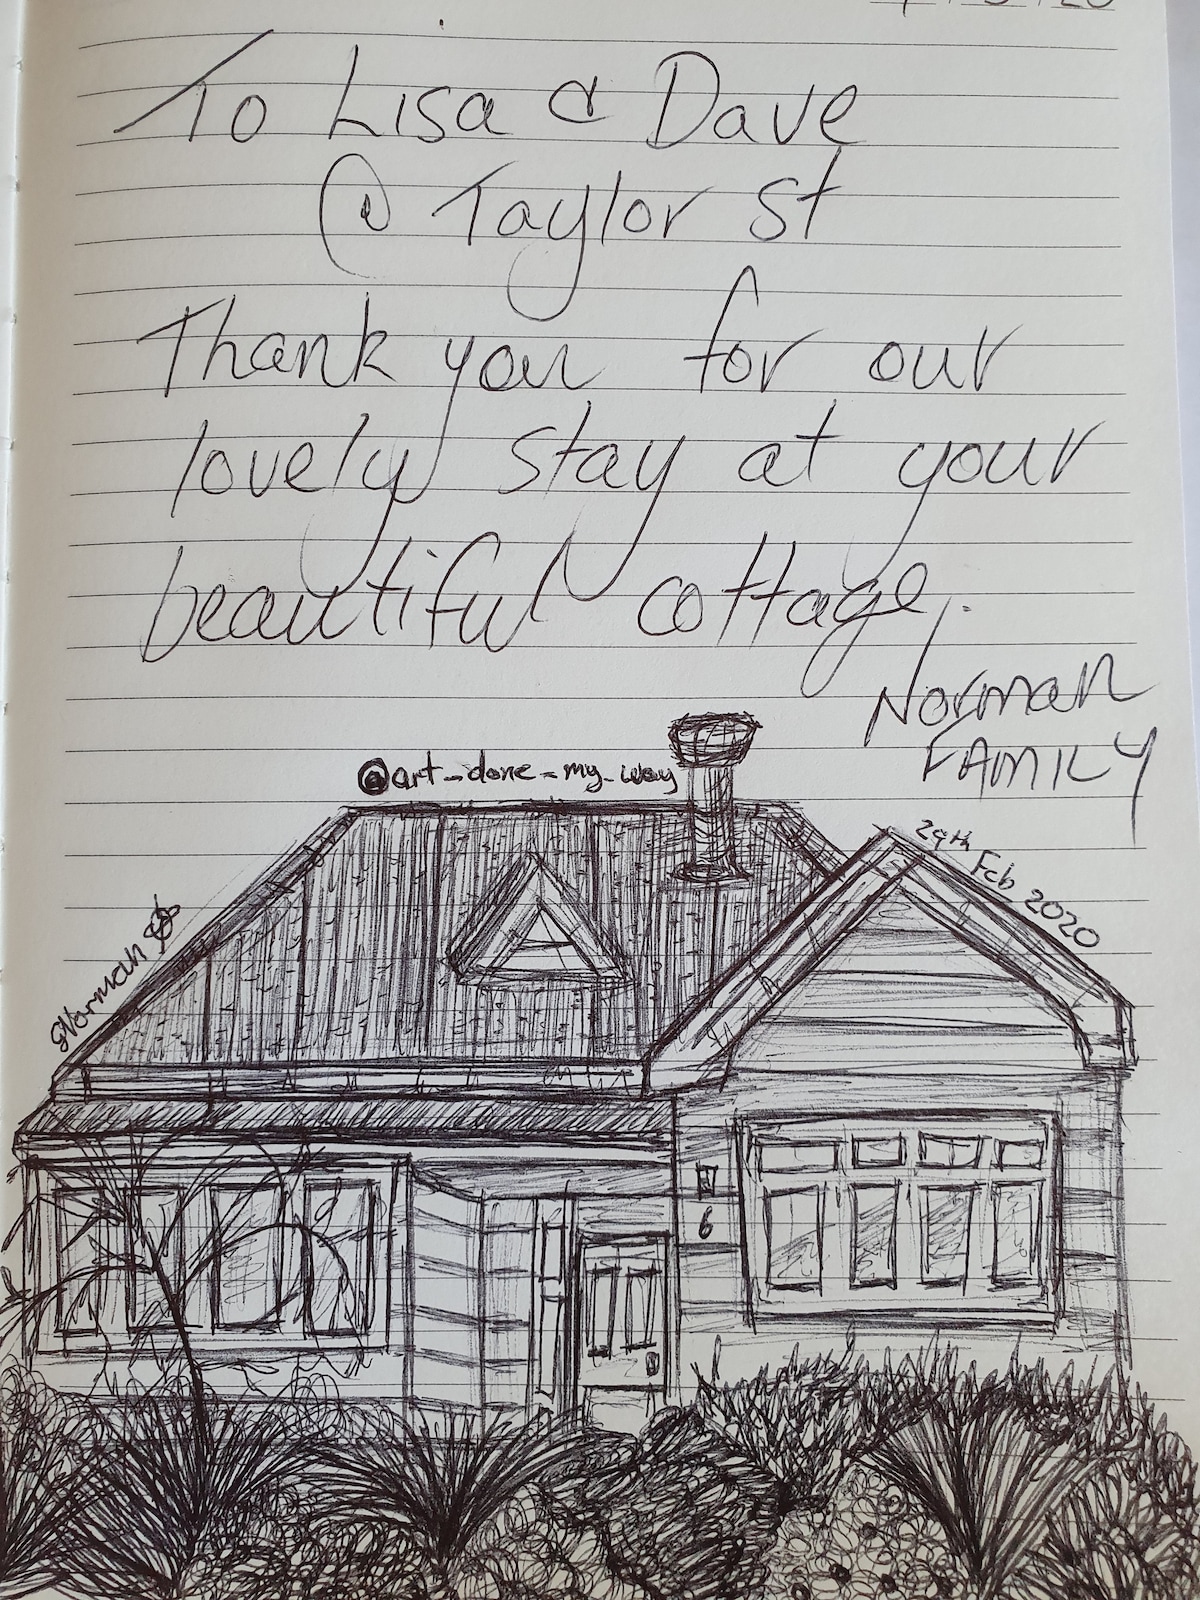 To Lisa & Dave
@ Taylor St
Thank you for our
lovely stay at your
beautiful cottage.
Norman
FAMILY
@art_done_my_way
29th Feb 2020
GNorman
6